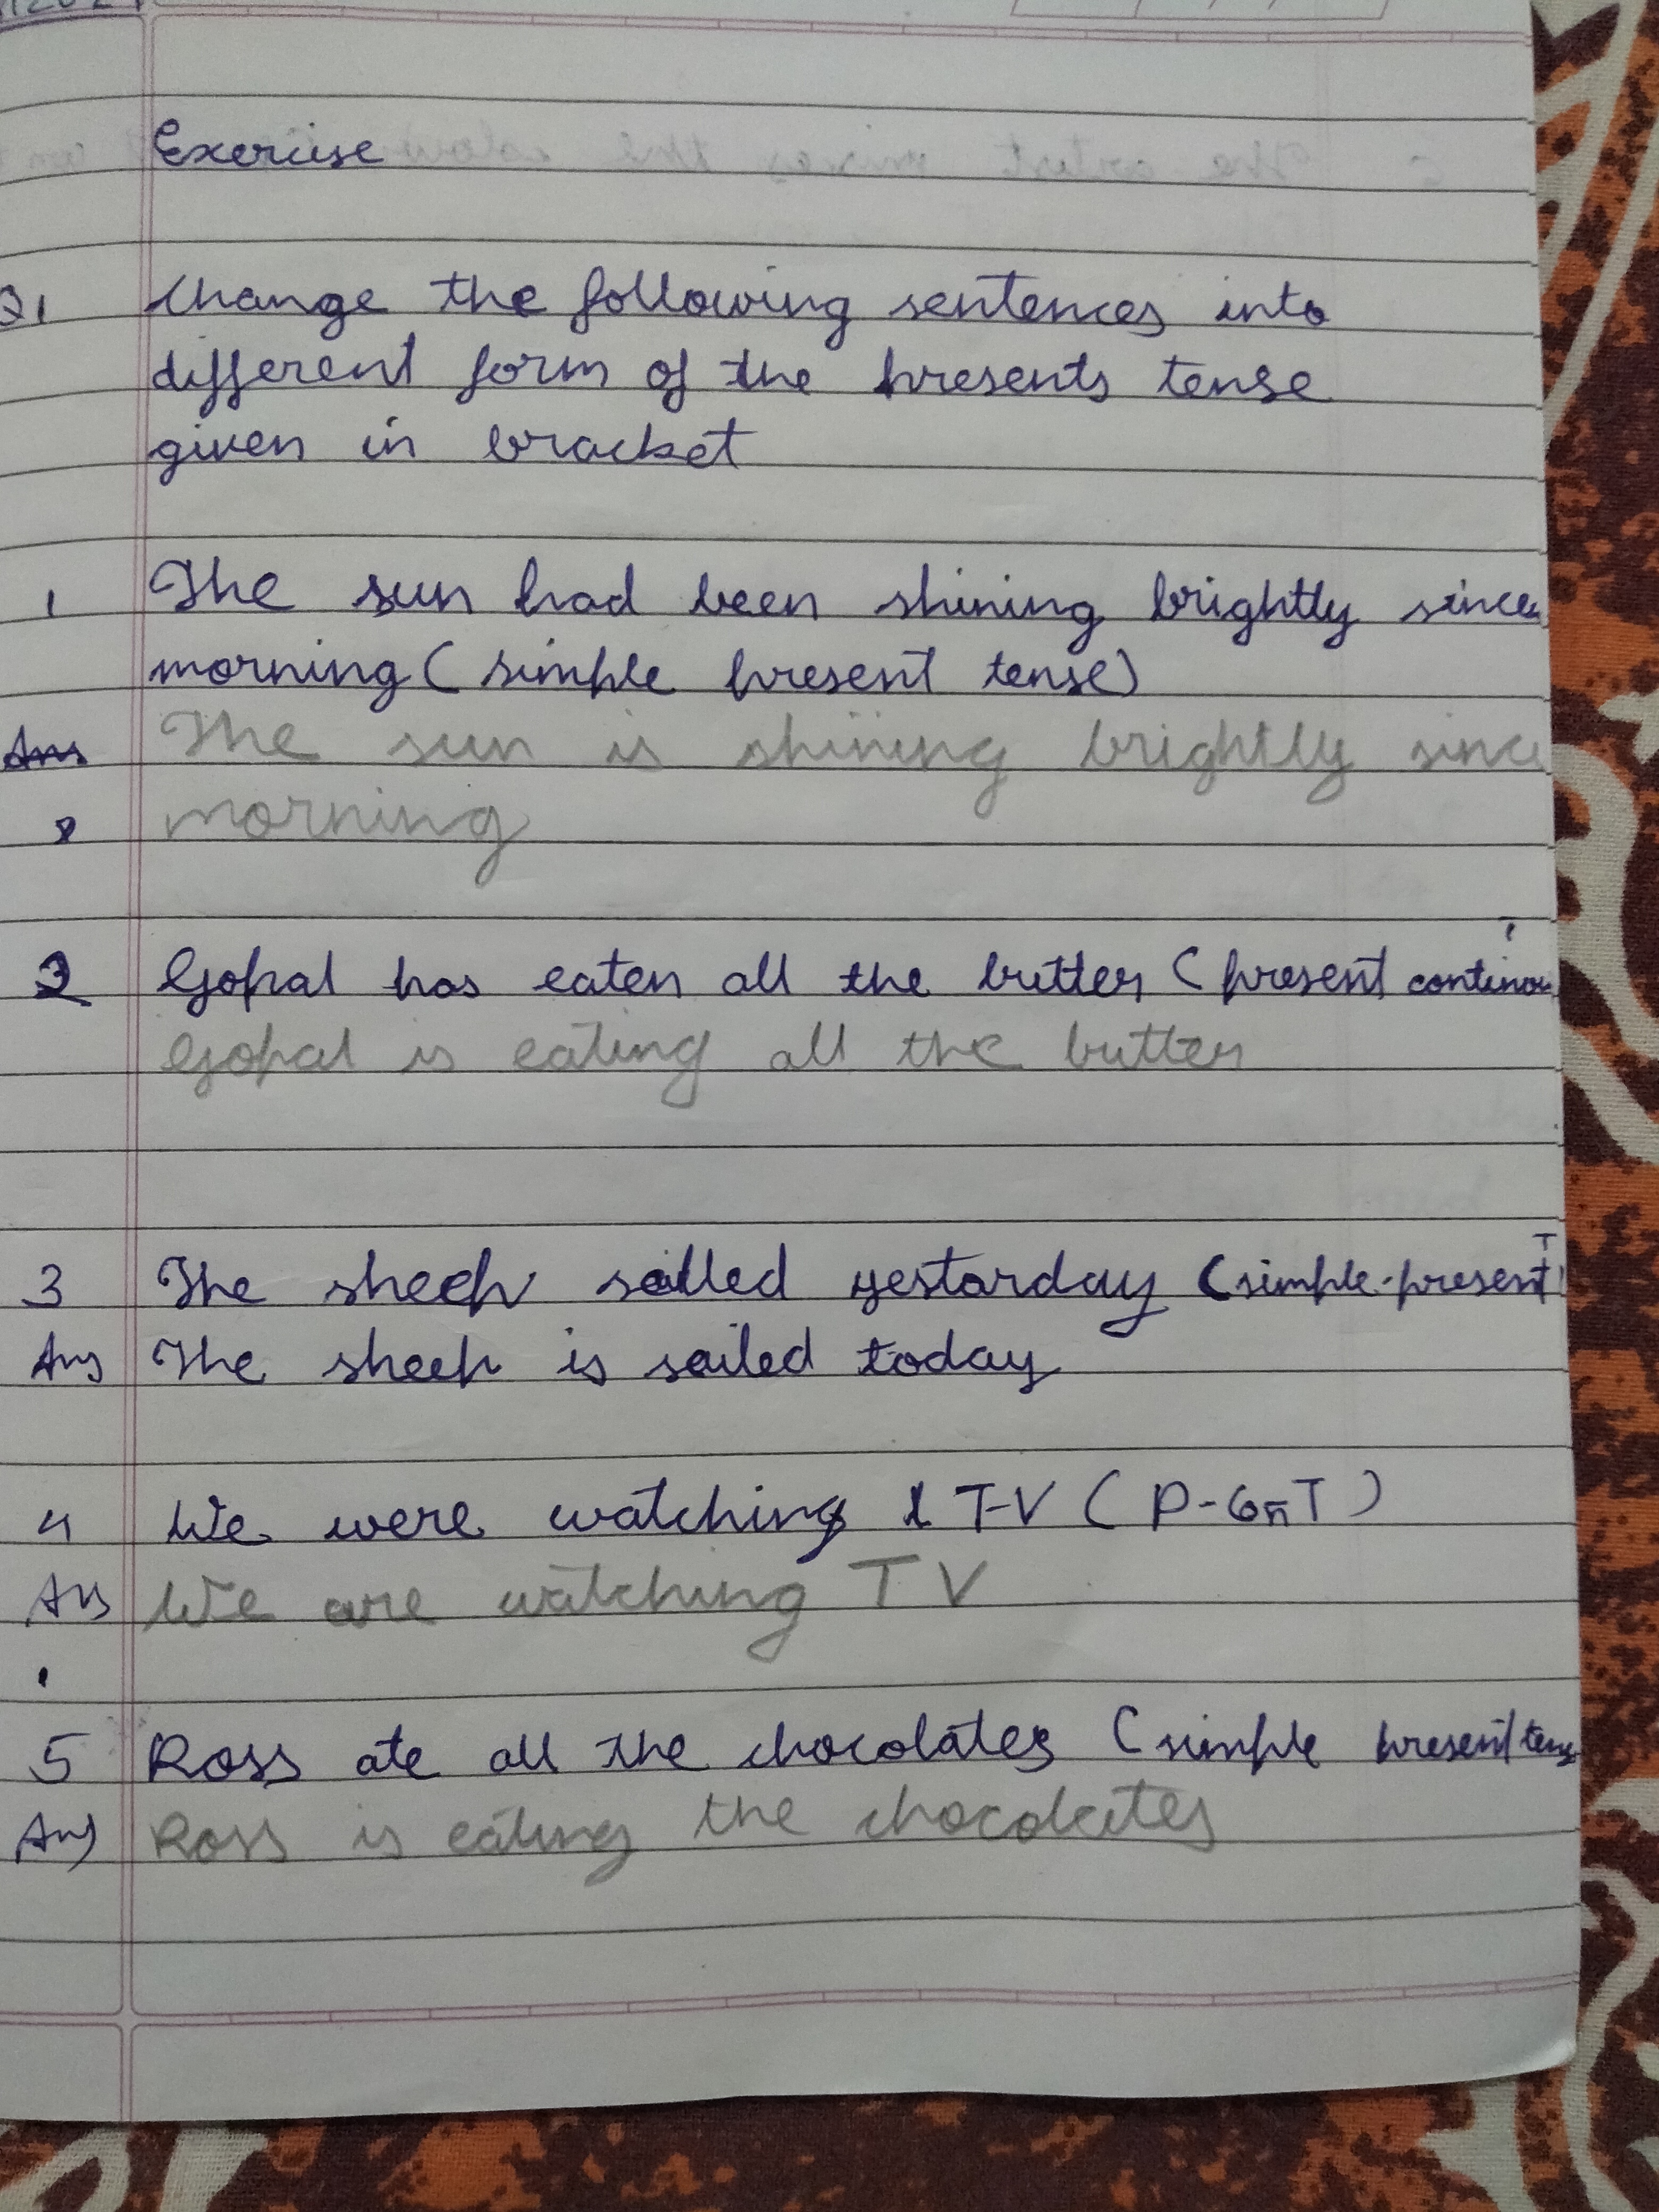 Exercise
Q1 Change the following sentences into
different form of the presents tense
given in bracket
1 The sun had been shining brightly since
morning ( simple present tense)
Ans The sun is shining brightly since
morning
2 Gopal has eaten all the butter ( present continou
T
Gopal is eating all the butter
3 The sheep sailed yestarday (simple-present T
Ans The sheep is sailed today
4 We were watching T-V ( P-CnT )
Ans We are watching TV
5 Ross ate all the chocolates ( simple present tens
Ans Ross is eating the chocolates